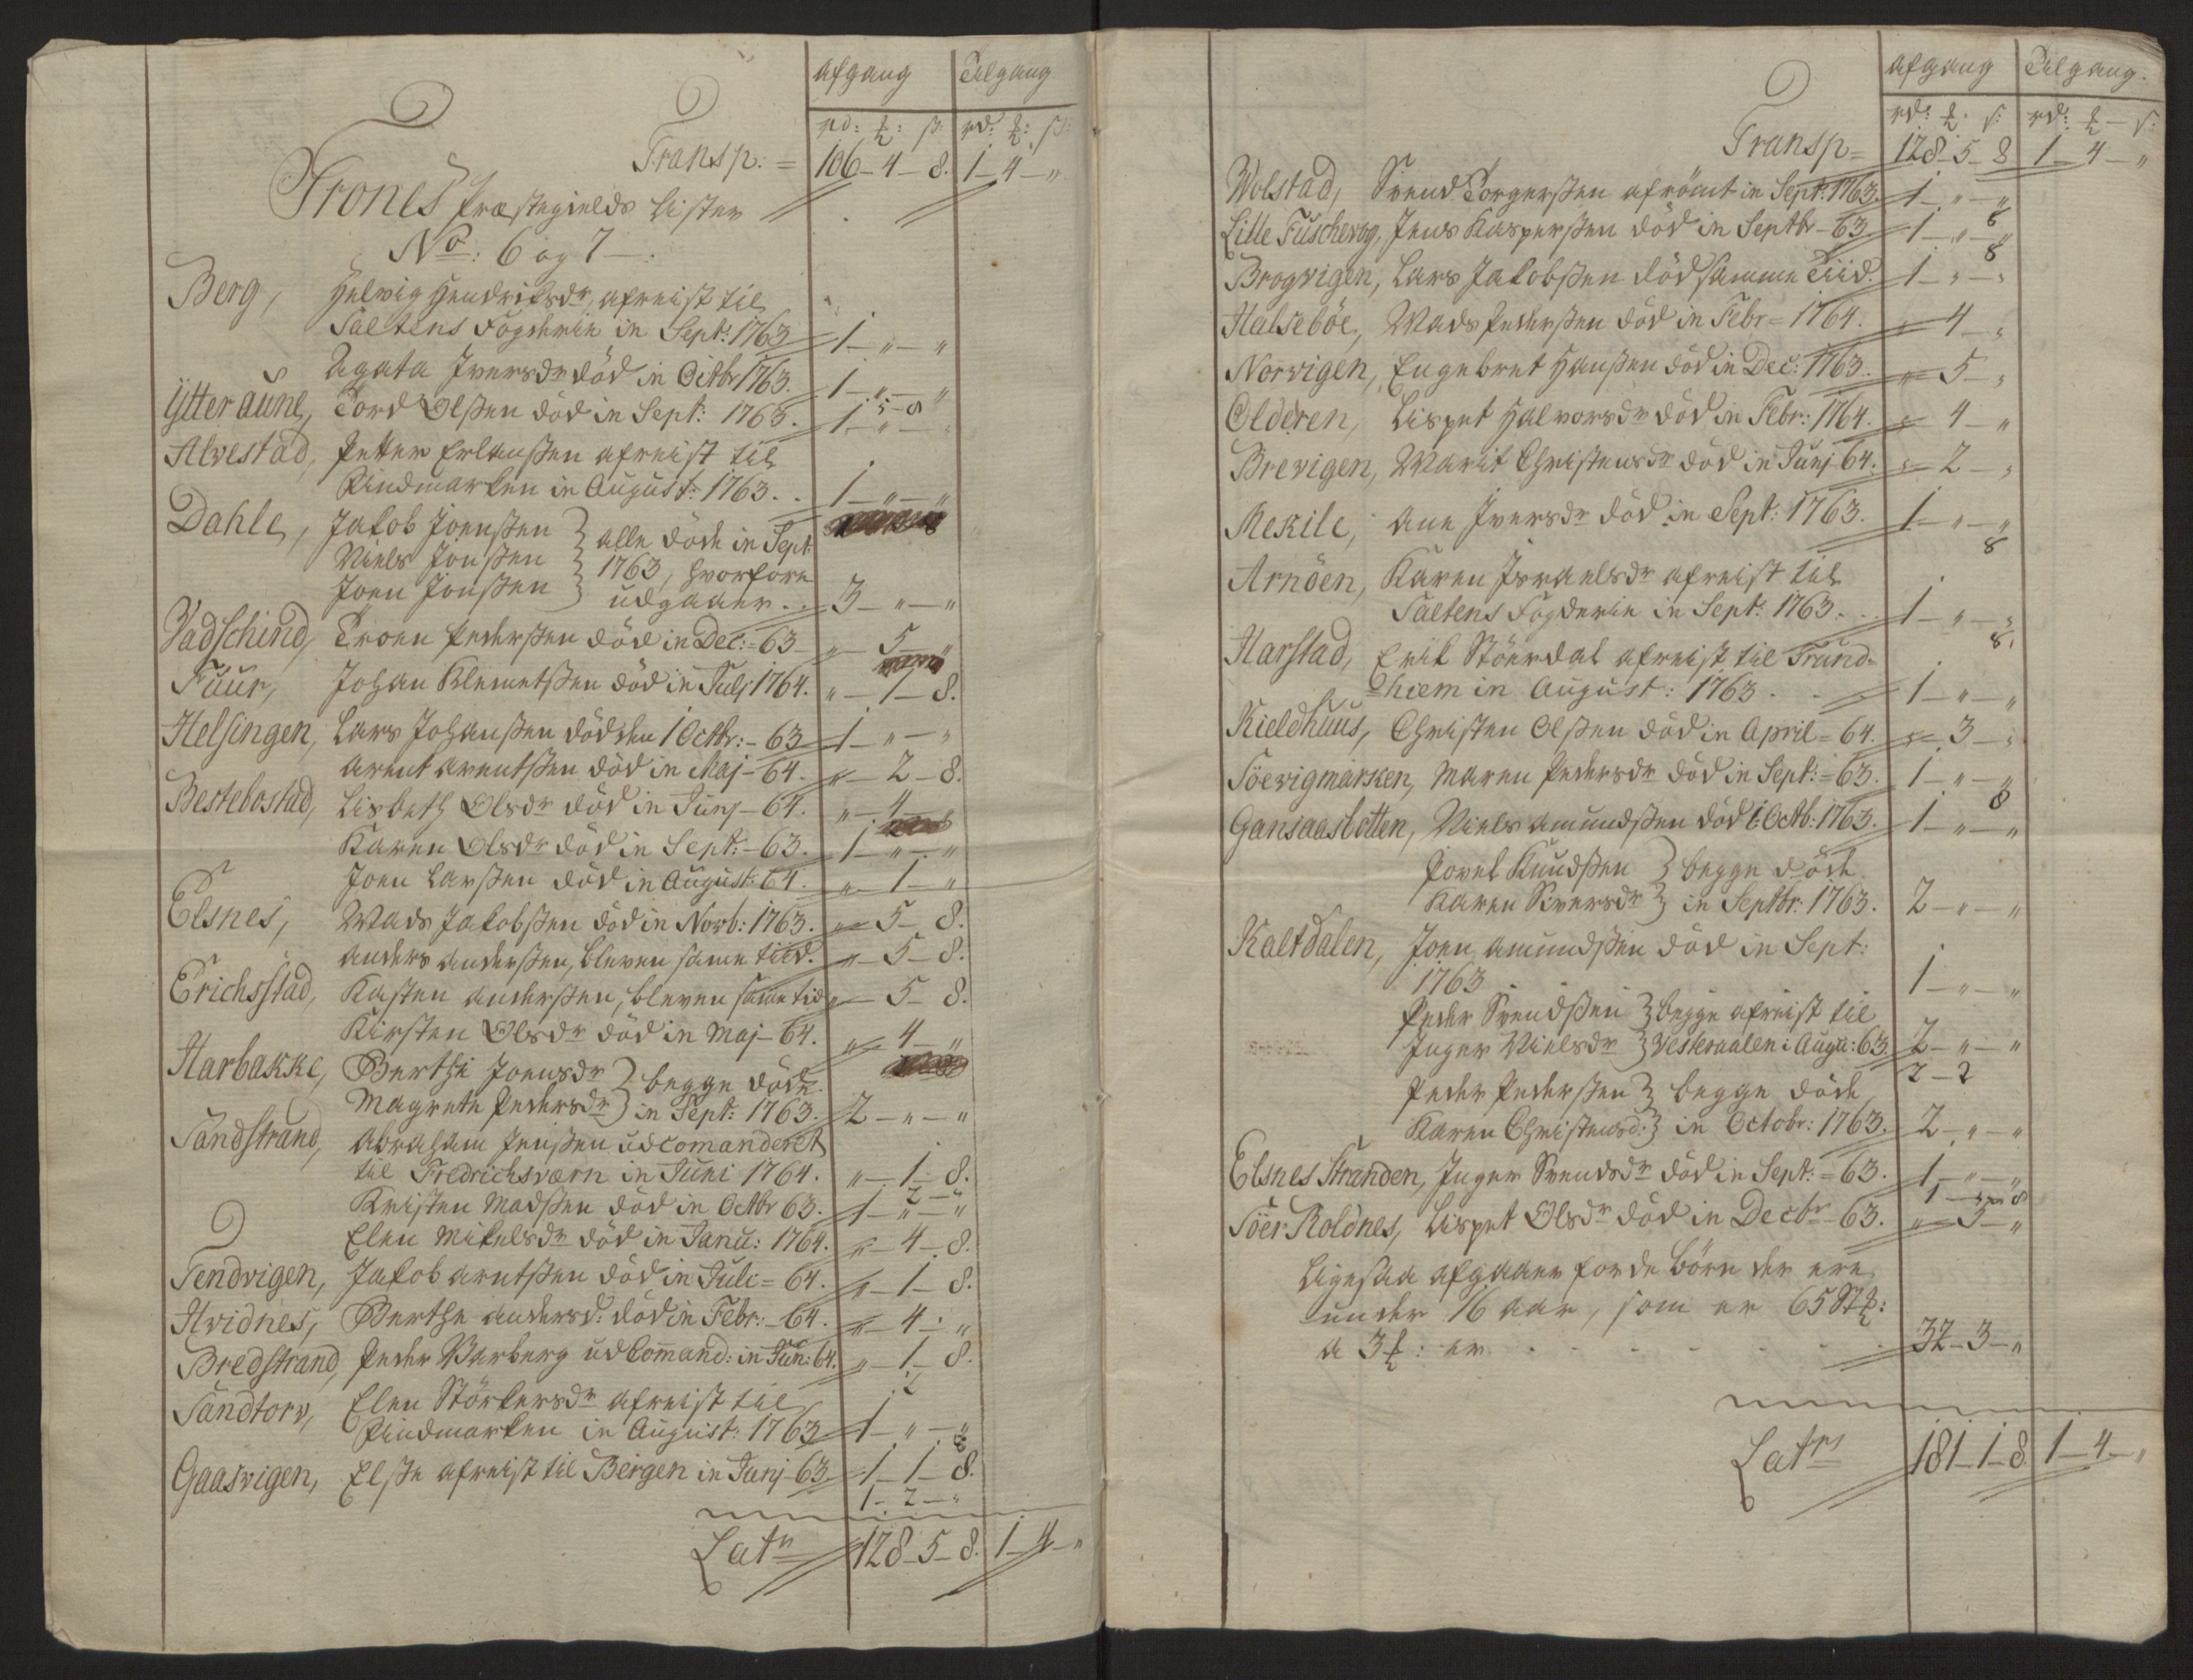 Afgang Tilgang
rd: ꝑ: ß: rd: ꝑ: ß:
Transp: = 106-4-8. 1-4-"
Trones Præstegields Lister
No: 6 og 7
Berg, Helvig Hendrichsdr, afreist til
Saltens Fogderie in Sept: 1763 1-"-"
Agata Iversdr død in Octbr 1763. 1-"-"
Ytteraune, Tord Olßen død in Sept: 1763. 1-"-"
Alvestad, Petter Erlanßen afreist til
Findmarken in August: 1763. . 1-"-"
Dahle, Jakob Joenßen } alle døde in Sept:
Niels Jonßen } 1763, hvorfore
Joen Jonßen } udgaaer . . 3-"-"
Vadschind, Troen Pederßen død in Dec: -63 "-5-"
Fuur, Johan Klemetßen død in Julj 1764. "-1-8.
Helsingen, Lars Johanßen død den 1 Octbr: -63 1-"-"
Arent Arentßen død in Maj -64. "-2-8.
Bestebostad, Lisbeth Olsdr død in Junj -64. "-4-"
Karen Olsdr død in Sept: -63. 1-"-"
Joen Larßen død in August: 64. "-1-"
Elsnes, Mads Jakobßen død in Novb: 1763. "-5-8.
Anders Anderßen, bleven samme tiid. "-5-8.
Erichsstad, Kasten Anderßen, bleven samme tid "-5-8.
Kirsten Olsdr død in Maj -64. "-4-"
Harbakke, Berthe Joensdr } begge døde
Magrete Pedersdr } in Sept: 1763. 2-"-"
Sandstrand, Abraham Jenßen udcomanderet
til Fredrichsværn in Juni 1764. "-1-8.
2-"
Kristen Madßen død in Octbr 63. 1-"-"
Elen Mikelsdr død in Janu: 1764. "-4-8.
Tendvigen, Jakob Arntßen død in Juli = 64. "-1-8.
Hvidnes, Berthe Andersd: død in Febr: -64. "-4-"
Bredstrand, Peder Warberg udComand: in Jun: 64. "-1-8.
2
Sandtorv, Elen Størkersdr afreist til
Findmarken in August: 1763 1-"-"
8
Gaasvigen, Elße afreist til Bergen in Junj -63. 1-1-8.
1-2-"
Latr 128-5-8. 1-4-"
Afgang Tilgang.
rd: ꝑ: ß: rd: ꝑ - ß:
Transp= 128-5-8 1-4-"
Wolstad, Svend Torgerßen afrømt in Sept: 1763. 1-"-"
8
Lille Fuschevog, Jens Kasperßen død in Septbr -63 1-"-"
8
Brogvigen, Lars Jakobßen død samme Tiid. 1-"-"
Halsebøe, Mads Pederßen død in Febr = 1764. "-4-"
Norvigen, Engebret Hanßen død in Dec: 1763. "-5-"
Olderen, Lispet Halvorsdr død in Febr: 1764. "-4-"
Brevigen, Marit Christensdr død in Junj 64. "-2-"
Rekile, Ane Iversdr død in Sept: 1763. 1-"-"
8
Arnöen, Karen Israelsdr afreist til
Saltens Fogderie in Sept: 1763. . . 1-"-"
8.
Harstad, Erik Stöerdal afreist til Trund-
=hiem in August: 1763 . . 1-"-"
Kieldhuus, Christen Olßen død in April = 64. "-3-"
Söevigmarken, Maren Pedersdr død in Sept: = 63. 1-"-"
8
Gansaasbotten, Niels Amundßen død i Octb: 1763. 1-"-"
Povel Knudßen } begge døde
Karen Siversdr } in Septbr: 1763. 2-"-"
Kaltdalen, Joen Amundßen død in Sept:
1763 1-"-"
Peder Svendßen } begge afreist til
Inger Nielsdr } Vesteraalen i Augu: 63. 2-"-"
2-2
Peder Pederßen } begge døde
Karen Christensd: } in Octobr: 1763. 2-"-"
Elsnes Stranden, Inger Svendsdr død in Sept: = 63. 1-"-"
Söer Roldnes, Lispet Olsdr død in Decbr -63. "-5-"
Ligesaa afgaaer for de Börn der ere
under 16 Aar, som er 65 Stk:
a 3 ꝑ: er . . . . . . 32-3-"
Latr 181-1-8 1-4-"